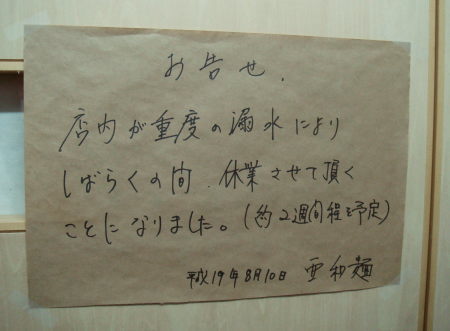 お告せ.
店内が重度の漏水により
しばらくの間.休業させて頂く
ことになりました。(約2週間程を予定)
平成19年8月10日 亜和麺